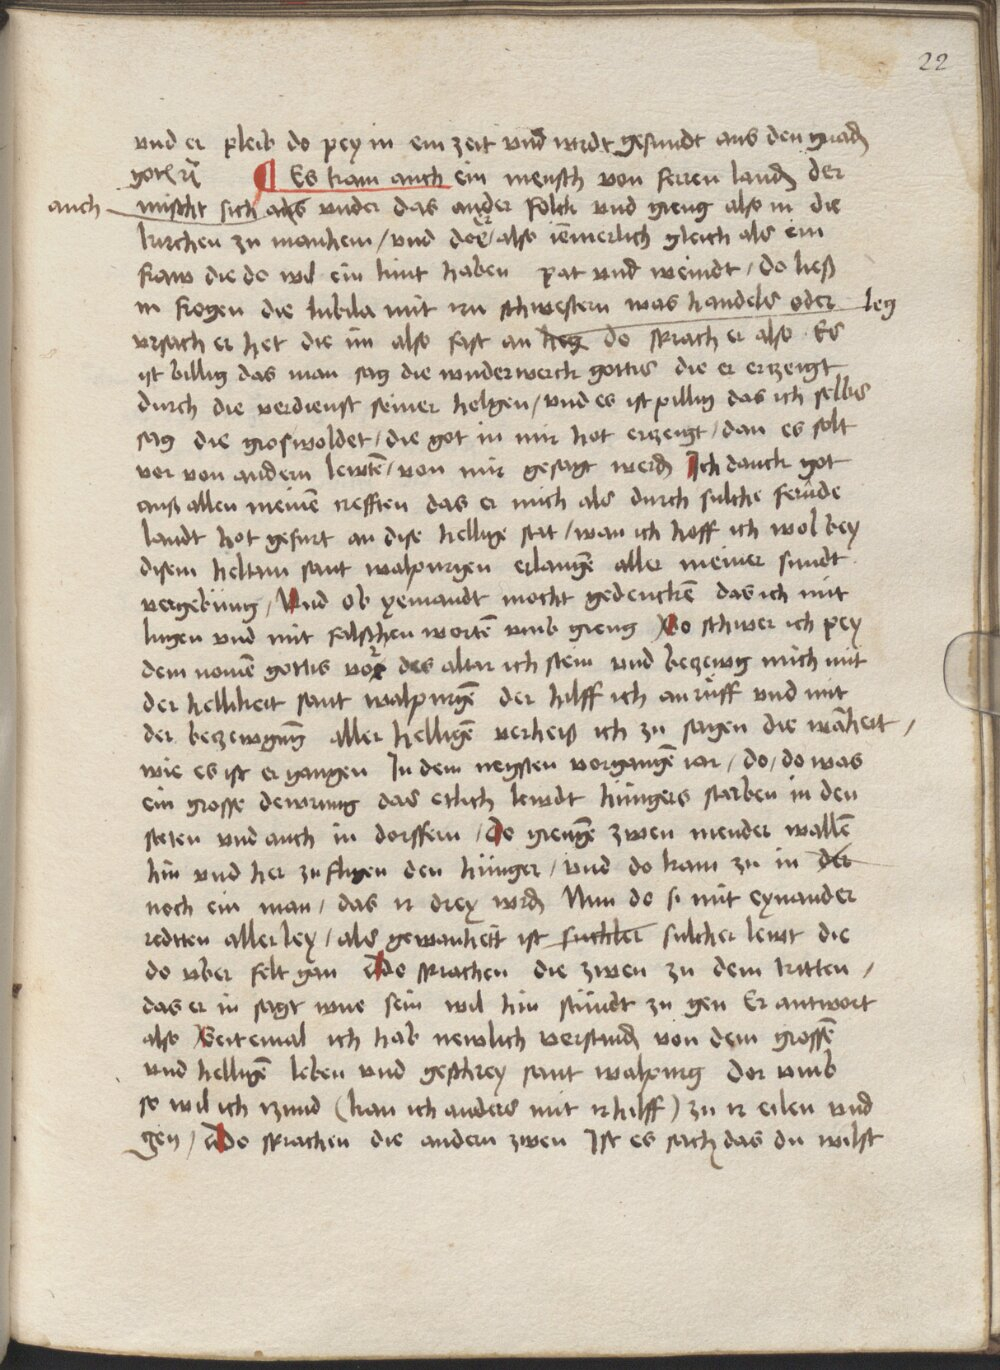 22
vnd er pleib do pey in ein zeit vnd wirdt gesundt aus den gnadn
gotz
¶ Es kam auch ein mensch von ferren landn der
auch mischt sich als vnder das ander folck vnd gieng also in die
kirchen zu manhem / vnd det also iemerlich gleich als ein
fraw die do wil ein kint haben pat vnd weindt / do ließ
in frogen die liubila mit irn schwestern was handels oder leg
vrsach er het die im also fast an heg do sprach er also Es
ist billig das man sag die wunderwerck gottis die er erzeigt
durch die verdienst seiner helgen / vnd es ist pillig das ich selbs
sag die groswoldet / die got in mir hot erzeigt / dan es solt
vor von andern lewtē / von mir gesagt werdn Ich danck got
auß allen meinē crefften das er mich als durch sulche ferūde
landt hot gefurt an dise hellige stat / wan ich hoff ich wol bey
disem heltum sant walpurgen erlangē aller meiner sundt
vergebung / Vnd ob yemandt mocht gedenckē das ich mit
lugen vnd mit falschen wortē vmb gieng / So schwer ich pey
dem nomē gottis vor des altar ich stein vnd bezewg mich mit
der hellikeit sant walpurgē der hilff ich an ruff vnd mit
der bezewgung aller helligē verheiß ich zu sagen die warheit /
wie es ist ergangen In dem neysten vorgangē iar / do / do was
ein grosse dewrung das etlich lewdt hungers starben in den
steten vnd auch in dorffern / Do giengē zwen mender wallē
hin vnd her zu fligen den hunger / vnd do kam zu in der
noch ein man / das ir drey wrdn Nun do si mit eynander
reditten allerley / als gewanheit ist suchler sulcher lewt die
do vber felt gan Do sprachen die zwen zu dem tritten /
das er in sagt wue sein wil hin stundt zu gen Er antwort
also Seitemal ich hab newlich verstandn von dem grossē
vnd helligē leben vnd geschrey sant walpurg Dor vmb
so wil ich izund (kan ich anders mit ir hilff) zu ir eilen vnd
gen / Do sprachen die andern zwen Ist es sach das du wilst